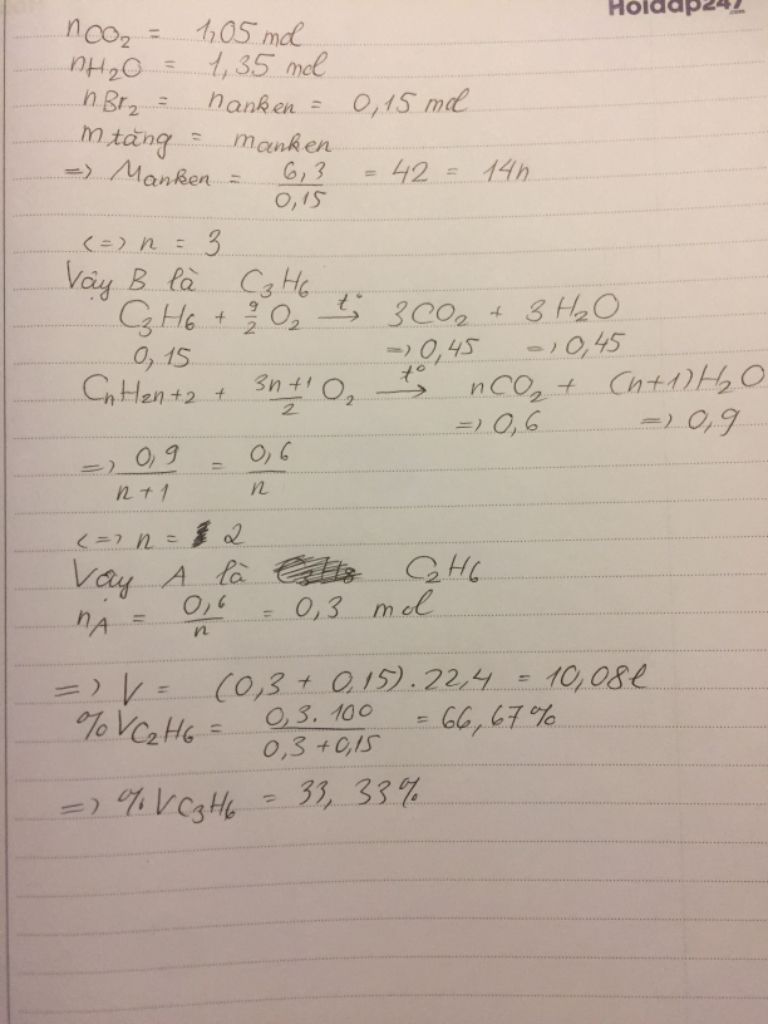 Hoidap247
nCO₂ = 1,05 mol
nH₂O = 1,35 mol
nBr₂ = nanken = 0,15 mol
mtăng = manken
=> Manken = 6,3/0,15 = 42 = 14n
<=> n = 3
Vậy B là C₃H₆
C₃H₆ + 9/2 O₂ –t°→ 3CO₂ + 3H₂O
0,15 => 0,45 => 0,45
CnH2n+2 + 3n+1/2 O₂ –t°→ nCO₂ + (n+1)H₂O
=> 0,6 => 0,9
=> 0,9/n+1 = 0,6/n
<=> n = 2
Vậy A là C₂H₆
nA = 0,6/n = 0,3 mol
=> V = (0,3 + 0,15).22,4 = 10,08l
%VC₂H₆ = 0,3.100/0,3+0,15 = 66,67%
=> %VC₃H₆ = 33,33%